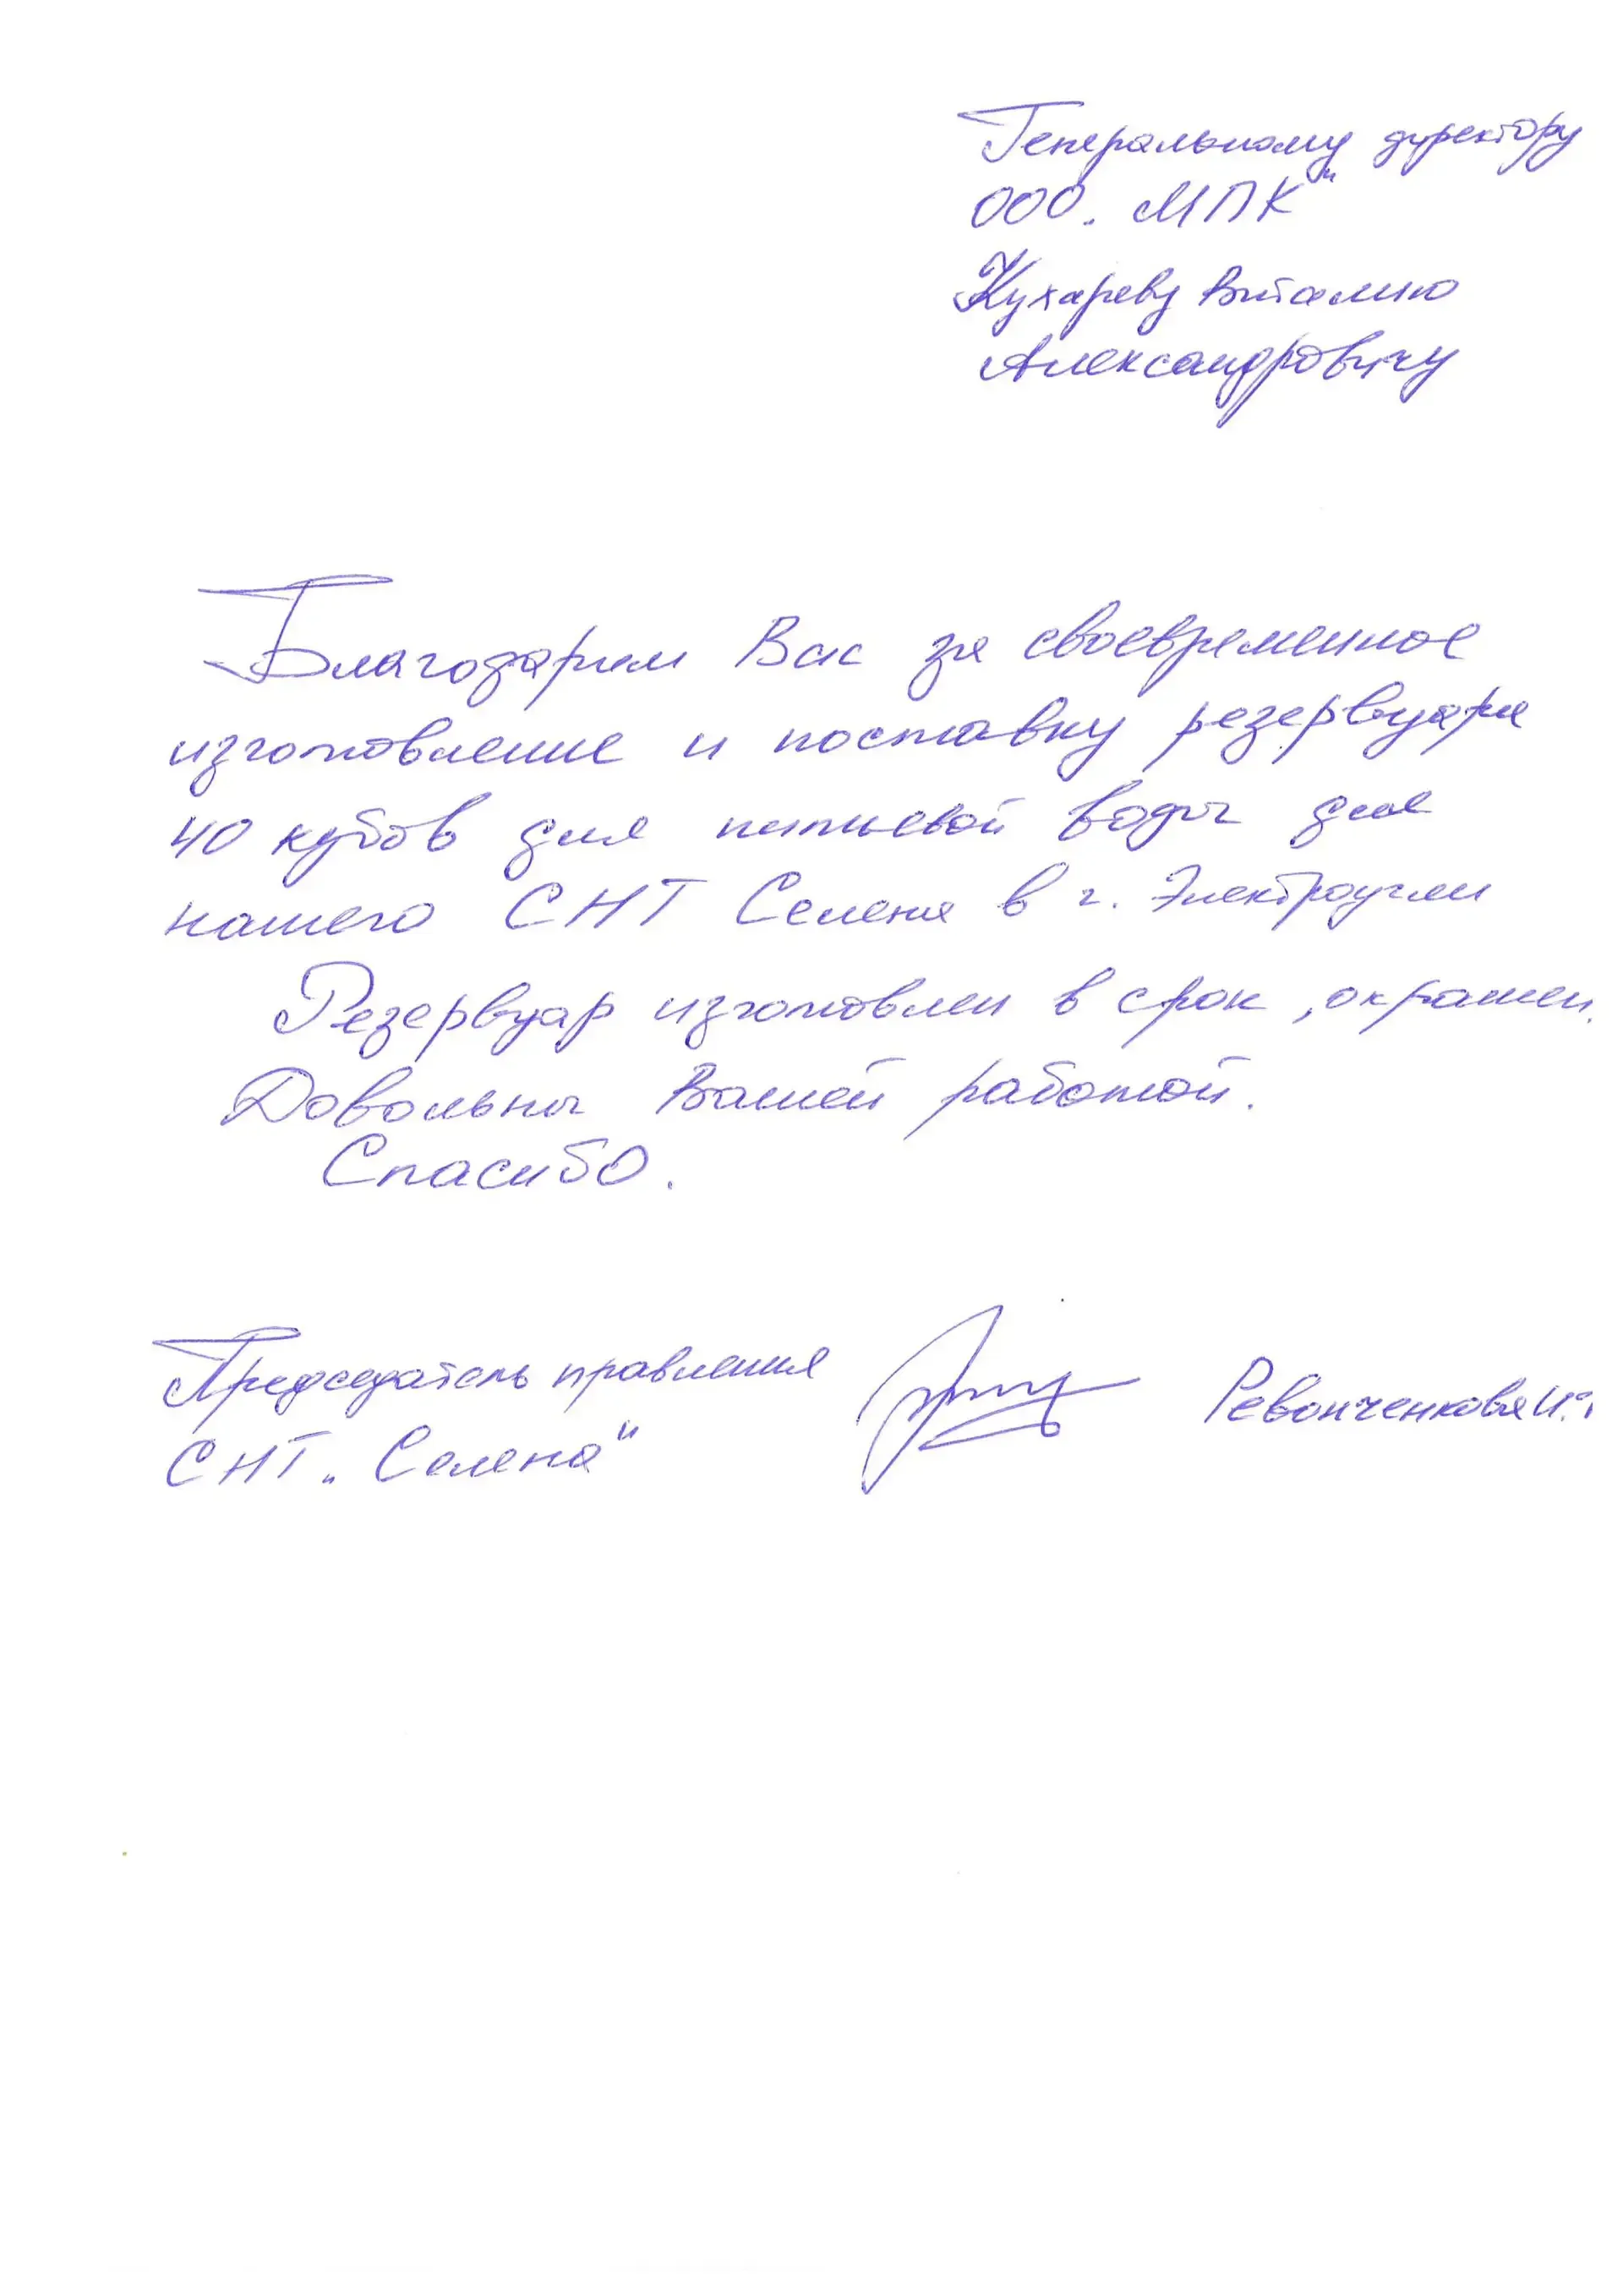 Генеральному директору
ООО „МПК"
Кухареву Виталию
Александровичу
Благодарим Вас за своевременное
изготовление и поставку резервуара
40 кубов для питьевой воды для
нашего СНТ Селена в г. Электроугли
Резервуар изготовлен в срок, окрашен.
Довольны Вашей работой.
Спасибо.
Председатель правления
СНТ „Селена"
Ревонченкова